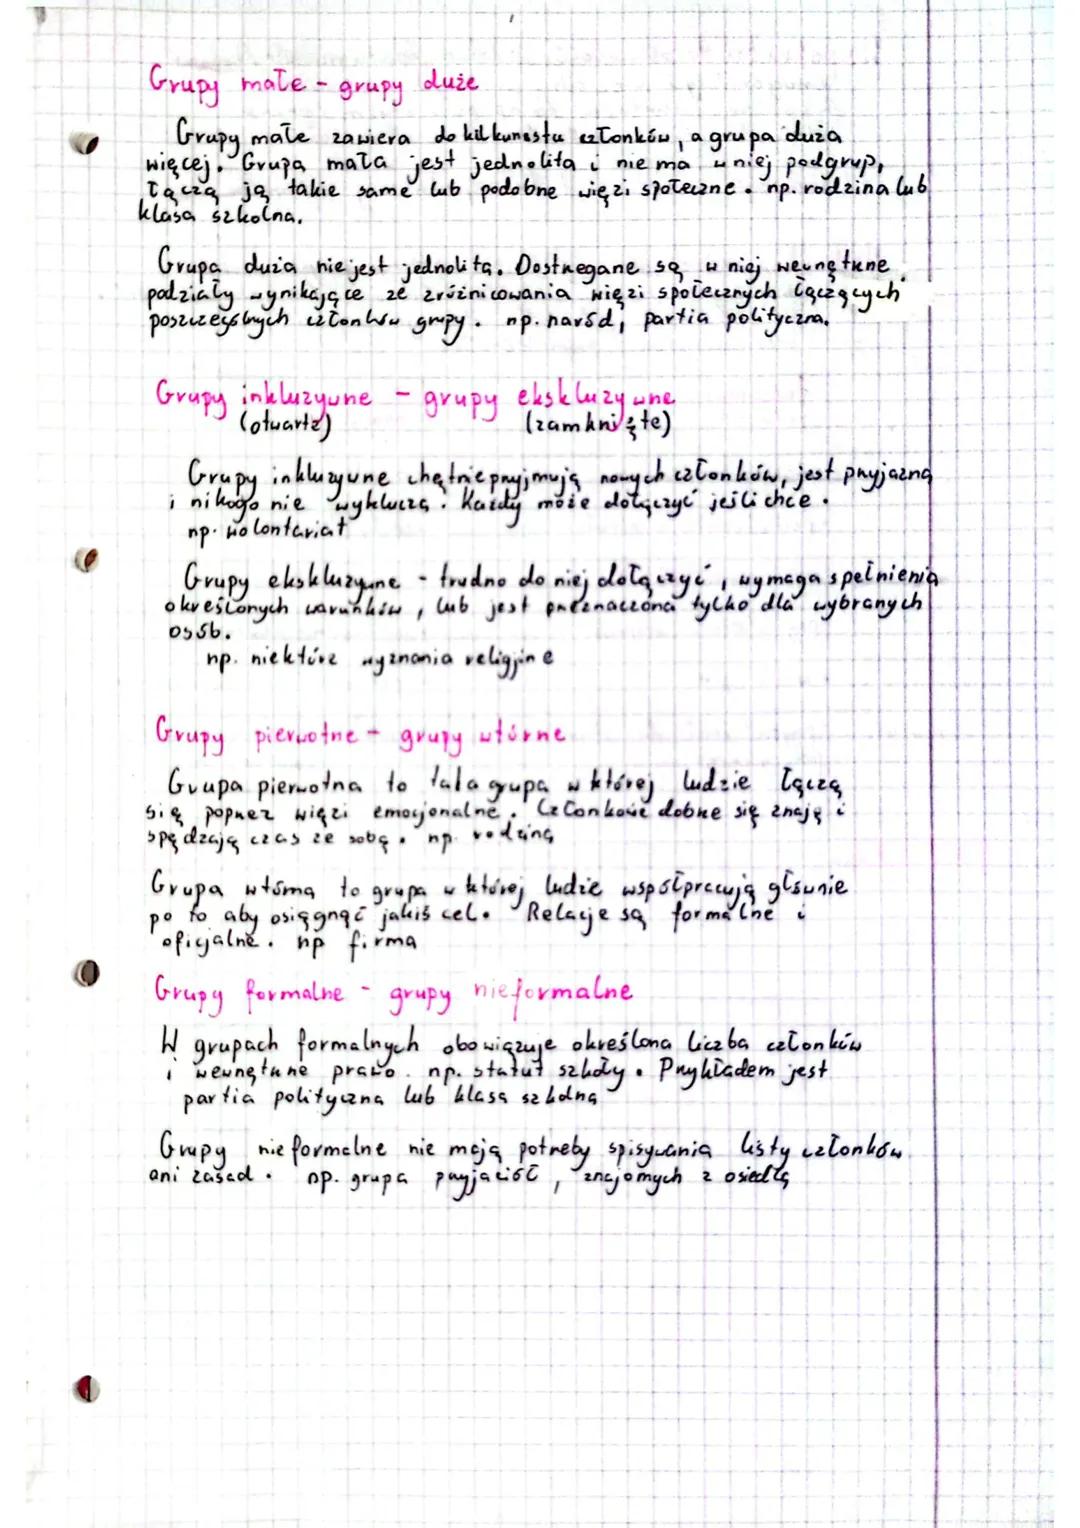 Grupy małe - grupy duże
Grupy małe zawiera do kilkunastu członków, a grupa duża
więcej. Grupa mała jest jednolita i nie ma w niej podgrup,
łączą ją takie same lub podobne więzi społeczne. np. rodzina lub
klasa szkolna.
Grupa duża nie jest jednolita. Dostrzegane są w niej wewnętrzne
podziały wynikające ze zróżnicowania więzi społecznych łączących
poszczególnych członków grupy. np. naród, partia polityczna.
Grupy inkluzywne - grupy ekskluzywne
(otwarte) (zamknięte)
Grupy inkluzywne chętnie przyjmują nowych członków, jest przyjazna
i nikogo nie wyklucza. Każdy może dołączyć jeśli chce.
np. wolontariat
Grupy ekskluzywne - trudno do niej dołączyć, wymaga spełnienia
określonych warunków, lub jest przeznaczona tylko dla wybranych
osób.
np. niektóre wyznania religijne
Grupy pierwotne - grupy wtórne
Grupa pierwotna to taka grupa w której ludzie łączą
się poprzez więzi emocjonalne. Członkowie dobrze się znają i
spędzają czas ze sobą. np. rodzina
Grupa wtórna to grupa w której ludzie współpracują głównie
po to aby osiągnąć jakiś cel. Relacje są formalne i
oficjalne. np firma
Grupy formalne - grupy nieformalne
W grupach formalnych obowiązuje określona liczba członków
i wewnętrzne prawo. np. statut szkoły. Przykładem jest
partia polityczna lub klasa szkolna
Grupy nieformalne nie mają potrzeby spisywania listy członków
ani zasad. np. grupa przyjaciół, znajomych z osiedla